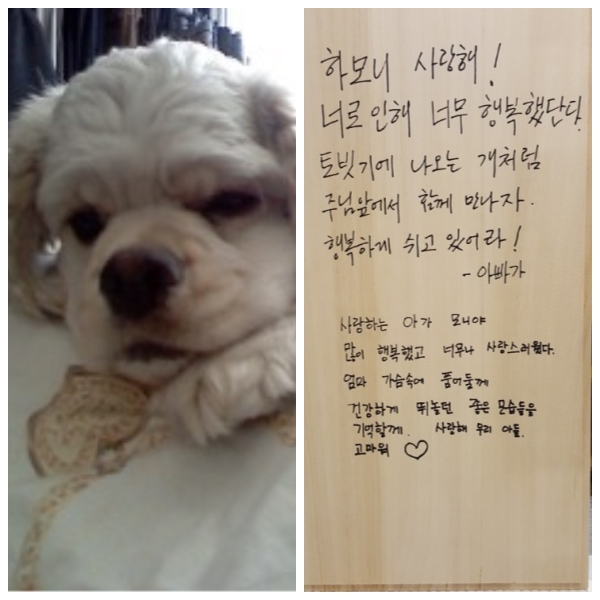 하모니 사랑해!
너로 인해 너무 행복했단다.
토빗기에 나오는 개처럼
주님앞에서 함께 만나자.
행복하게 쉬고 있어라!
- 아빠가
사랑하는 아가 모니야
많이 행복했고 너무나 사랑스러웠다.
엄마 가슴속에 품어둘게
건강하게 뛰놀던 좋은 모습들을
기억할게. 사랑해 우리 아들.
고마워 ♡